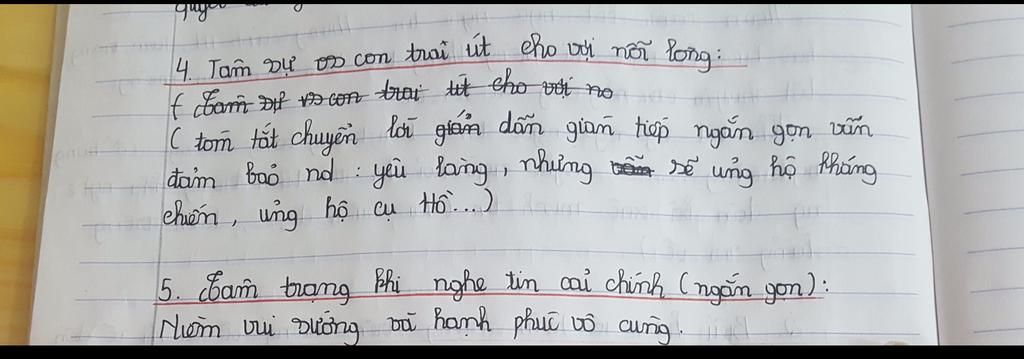 4. Tâm sự vs con trai út cho vợi nỗi lòng:
( Tâm sự vs con trai út cho vợi no
( tóm tắt chuyển lời gián dẫn gián tiếp ngắn gọn vẫn
đảm bảo nd : yêu làng, nhưng vẫn sẽ ủng hộ kháng
chiến, ủng hộ cụ Hồ...)
5. Tâm trạng khi nghe tin cải chính (ngắn gọn):
Niềm vui sướng và hạnh phúc vô cùng.